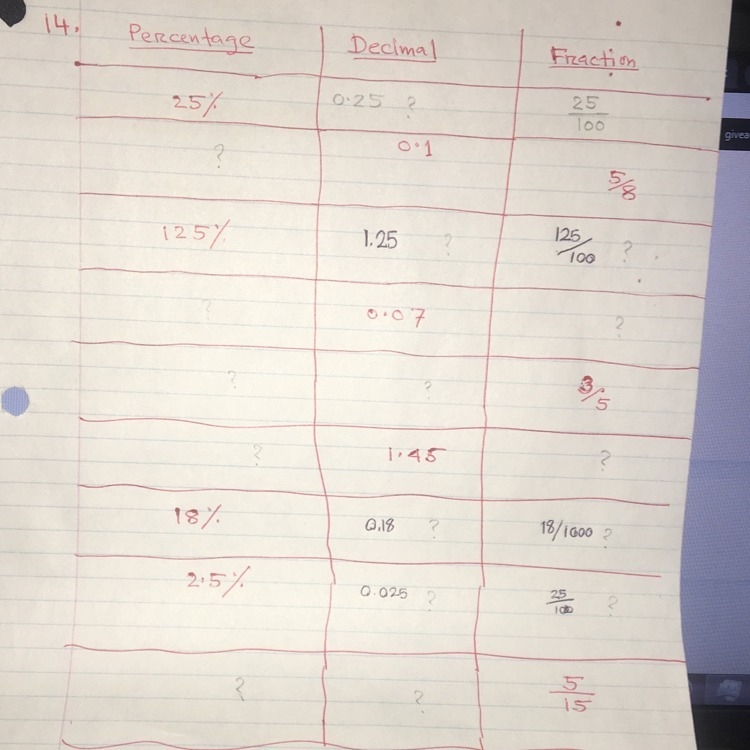 14. Percentage Decimal Fraction
25% 0.25 ? 25/100
? 0.1 5/8
125% 1.25 ? 125/100 ?
? 0.07 ?
? ? 3/5
? 1.45 ?
18% 0.18 ? 18/1000 ?
2.5% 0.025 ? 25/100 ?
? ? 5/15
givea